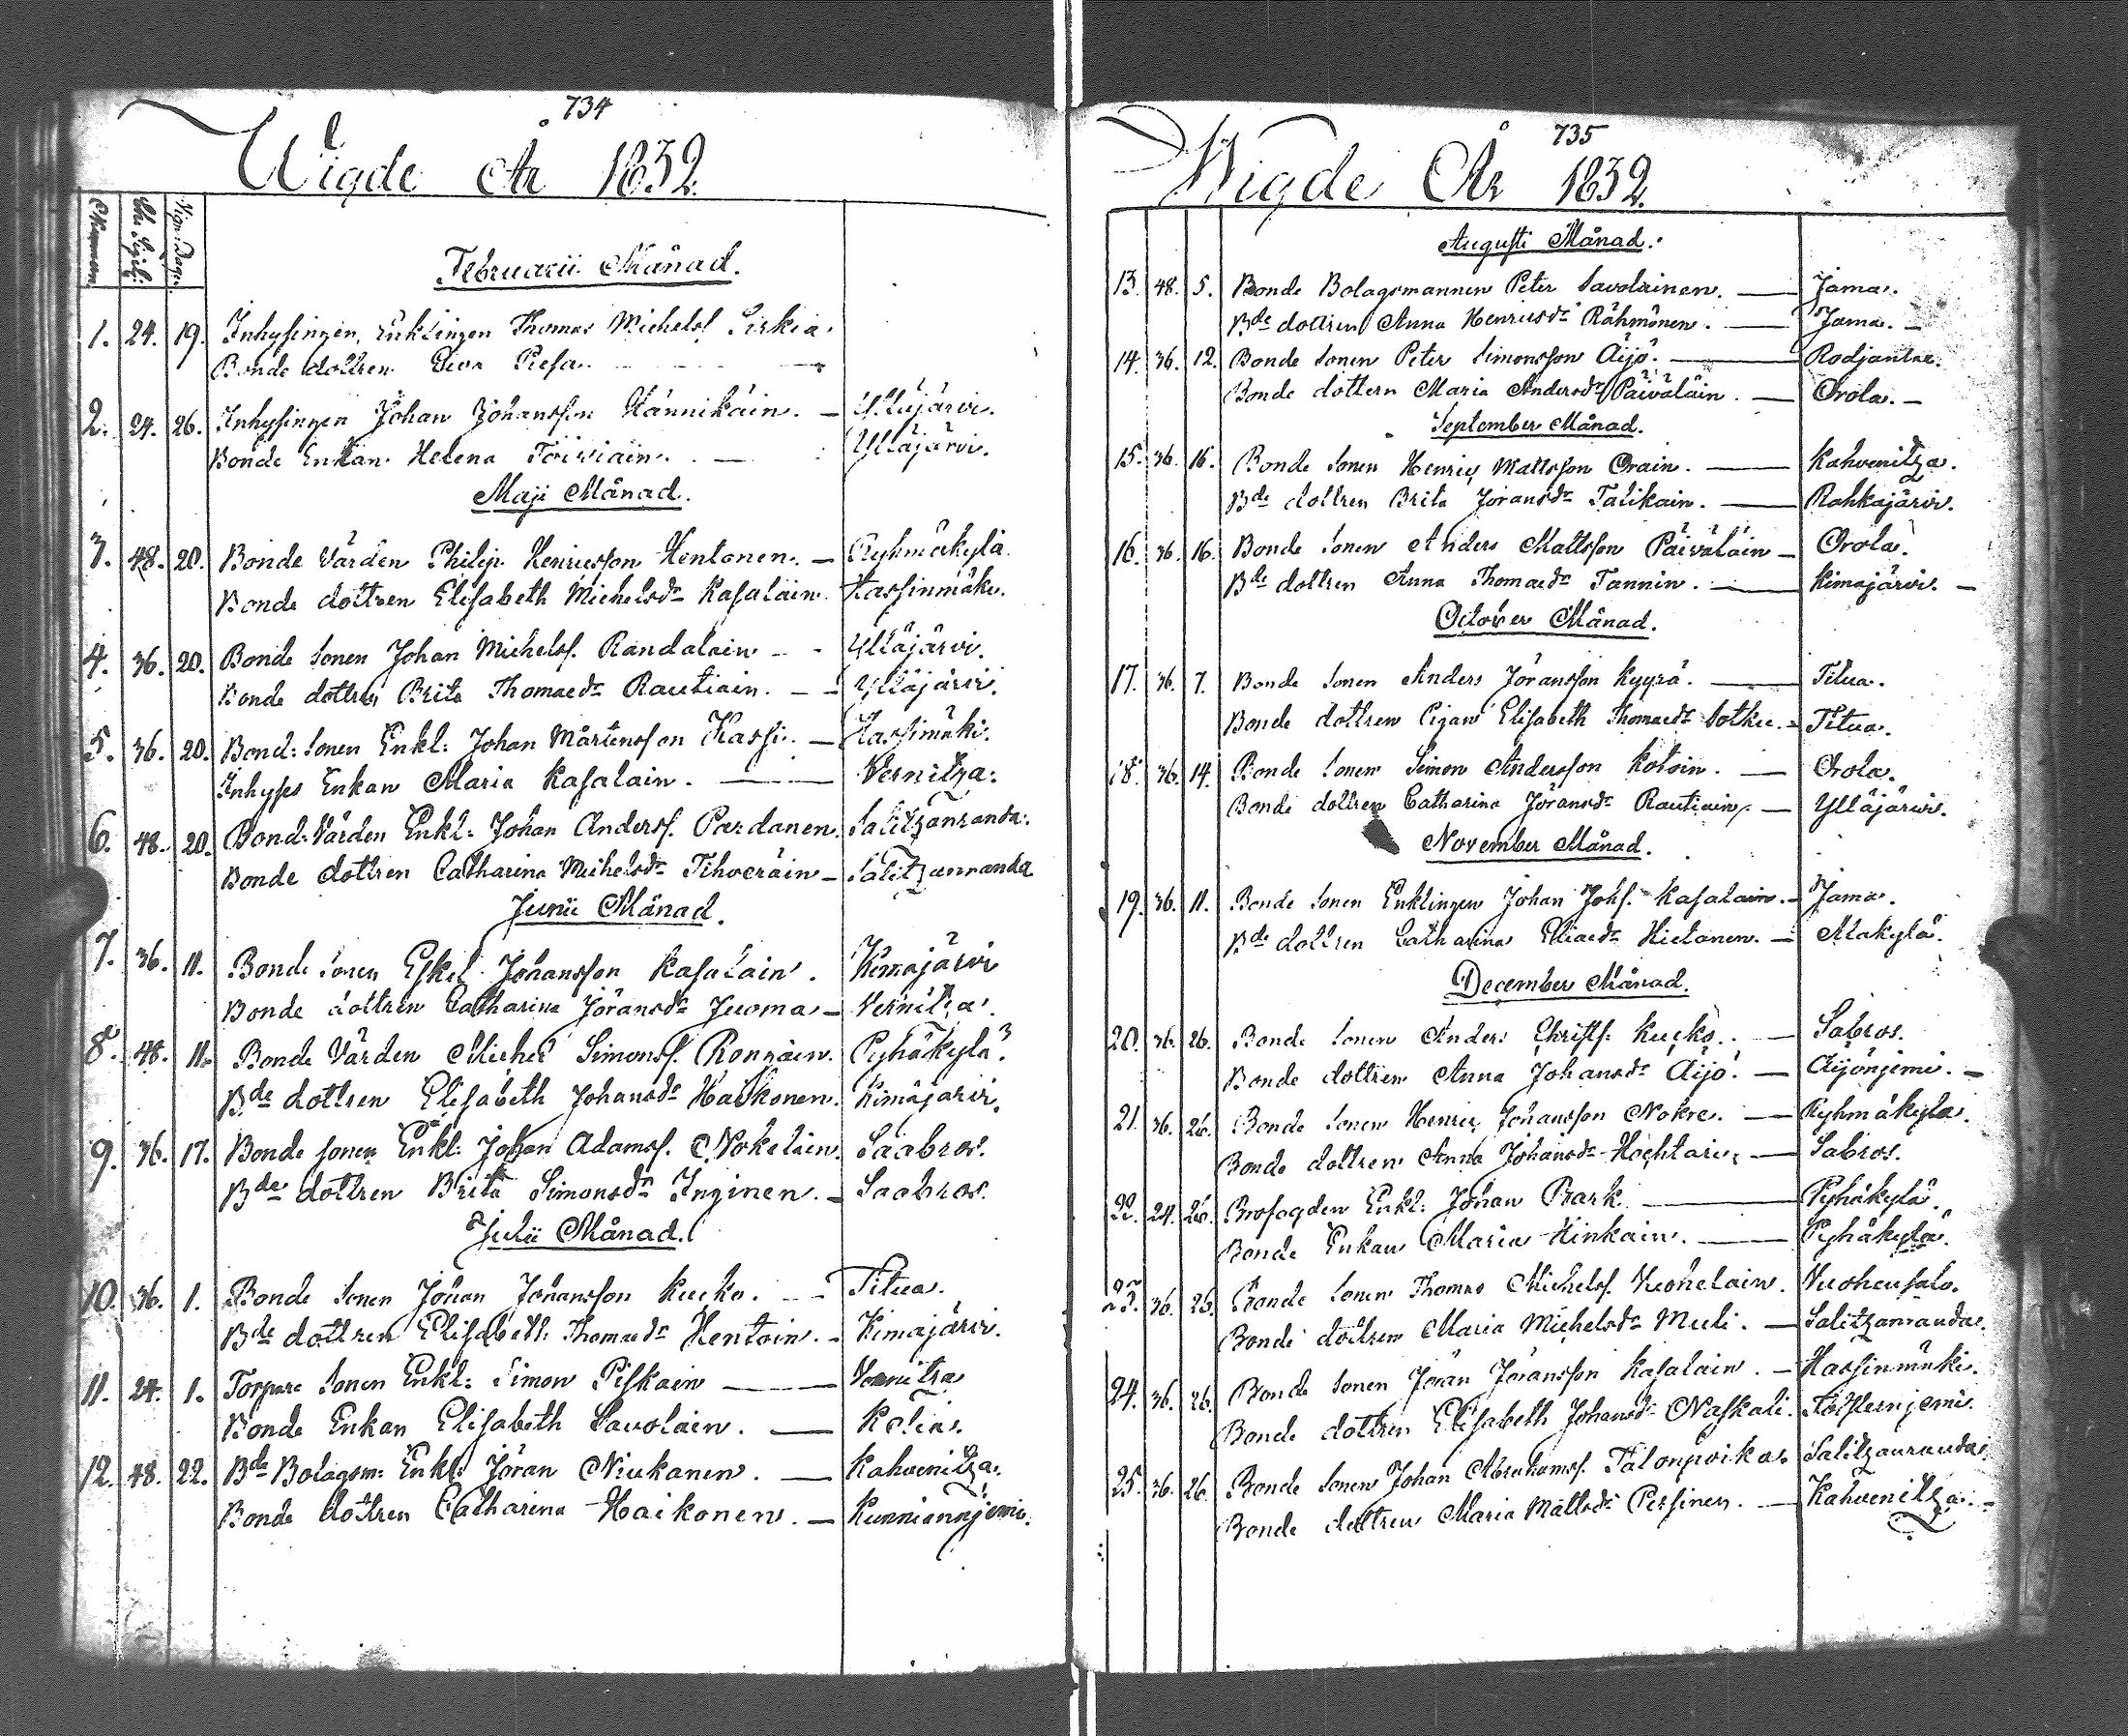 734
Wigde År 1832.
Nummern Cha. Sigill: Vign: Dagar
Februarii Månad.
1. 24. 19. Inhysingen, Enklingen Thomas Michelss. Sirkiä.
Bonde dottren Eva Piesa.
2. 24. 26. Inhysingen Johan Johansson Hännikäin. — Ylläjärvi.
Bonde Enkan Helena Toiviain. — Ylläjärvi.
Maji Månad.
3. 48. 20. Bonde Värden Philip Henricsson Hentonen. — Ryhmäkylä.
Bonde dottren Elisabeth Michelsdr Kasalain. Hassinmäki.
4. 36. 20. Bonde Sonen Johan Michelss. Randalain — Ylläjärvi.
Bonde dottren Brita Thomaedr Rautiain. — Ylläjärvi.
5. 36. 20. Bond: Sonen Enkl: Johan Mårtensson Hassi. — Hassimäki.
Inhyses Enkan Maria Kasalain. — Vernitza.
6. 48. 20. Bond: Värden Enkl: Johan Anderss. Pardanen. Salitzanranda.
Bonde dottren Catharina Michelsdr Tihveräin — Salitzanranda
Junii Månad.
7. 36. 11. Bonde Sonen Eskel Johansson Kasalain. Kimajärvi
Bonde dottren Catharina Jöransdr Juoma — Vernitza.
8. 48. 11. Bonde Värden Michel Simonss. Rongain. Pyhäkylä.
Bde dottren Elisabeth Johansdr Haikonen. Kimajärvi.
9. 36. 17. Bonde Sonen Enkl: Johan Adamss. Nokelain. Saabros.
Bde dottren Brita Simonsdr Inginen. — Saabros.
Julii Månad.
10. 36. 1. Bonde Sonen Johan Johansson Kucko. — Titua.
Bde dottren Elisabeth Thomaedr Hentoin. — Kimajärvi.
11. 24. 1. Torpare Sonen Enkl: Simon Piskain — Vernitza
Bonde Enkan Elisabeth Savolain. — Kolin.
12. 48. 22. Bde Bolagsm: Enkl: Jöran Niukanen. — Kahvenitza.
Bonde dottren Catharina Haikonen. — Kunnianniemi.
735
Wigde År 1832.
Augusti Månad.
13. 48. 5. Bonde Bolagsmannen Peter Savolainen. — Jama.
Bde dottren Anna Henricsdr Rähmönen. — Jama. —
14. 36. 12. Bonde Sonen Peter Simonsson Äijö. — Rodjantae.
Bonde dottern Maria Andersdr Päiväläin. — Orola. —
September Månad.
15. 36. 16. Bonde Sonen Henric Mattsson Orain. — Kahvenitza.
Bde dottren Brita Jöransdr Talikain. — Rahkajärvi.
16. 36. 16. Bonde Sonen Anders Mattsson Päiväläin — Orola.
Bde dottren Anna Thomaedr Tannin. — Kimajärvi. —
October Månad.
17. 36. 7. Bonde Sonen Anders Jöransson Kyyrä. — Titua.
Bonde dottren Pigan Elisabeth Thomaedr Sotku. — Titua.
18. 36. 14. Bonde Sonen Simon Andersson Kotoin. — Orola.
Bonde dottren Catharina Jöransdr Rautiain. — Ylläjärvi.
November Månad.
19. 36. 11. Bonde Sonen Enklingen Johan Johss. Kasalain. — Jama.
Bde dottren Catharina Eliaedr Hietanen. — Makylä.
December Månad.
20. 36. 26. Bonde Sonen Anders Christss. Kucko. — Sabros.
Bonde dottren Anna Johansdr Äijö. — Äijönjemi. —
21. 36. 26. Bonde Sonen Henric Johansson Nokre. — Ryhmäkylä.
Bonde dottren Anna Johansdr Hochtari. — Sabros.
22. 24. 26. Brofogden Enkl: Johan Bark — Pyhäkylä.
Bonde Enkan Maria Hinkain. — Pyhäkylä.
23. 36. 26. Bonde Sonen Thomas Michelss. Vuohelain. Vuohensalo.
Bonde dottren Maria Michelsdr Muli. — Salitzanranda.
24. 36. 26. Bonde Sonen Jöran Jöransson Kasalain. — Hassinmäki.
Bonde dottren Elisabeth Johansdr Naskali.
25. 36. 26. Bonde Sonen Johan Abrahamss. Talonpoika. Salitzanranda.
Bonde dottren Maria Mattsdr Pessinen. — Kahvenitza. —